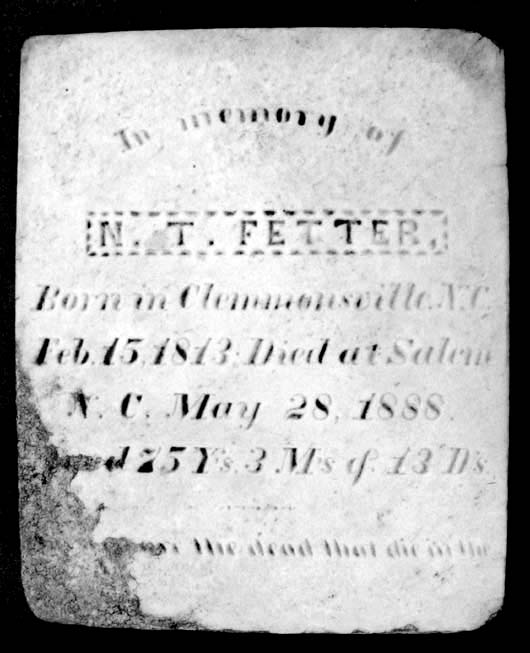 In memory of
N. T. FETTER,
Born in Clemmonsville, N.C.
Feb. 15, 1813; Died at Salem
N. C. May 28, 1888.
75 Ys. 3 Ms & 13 Ds.
the dead that die in the